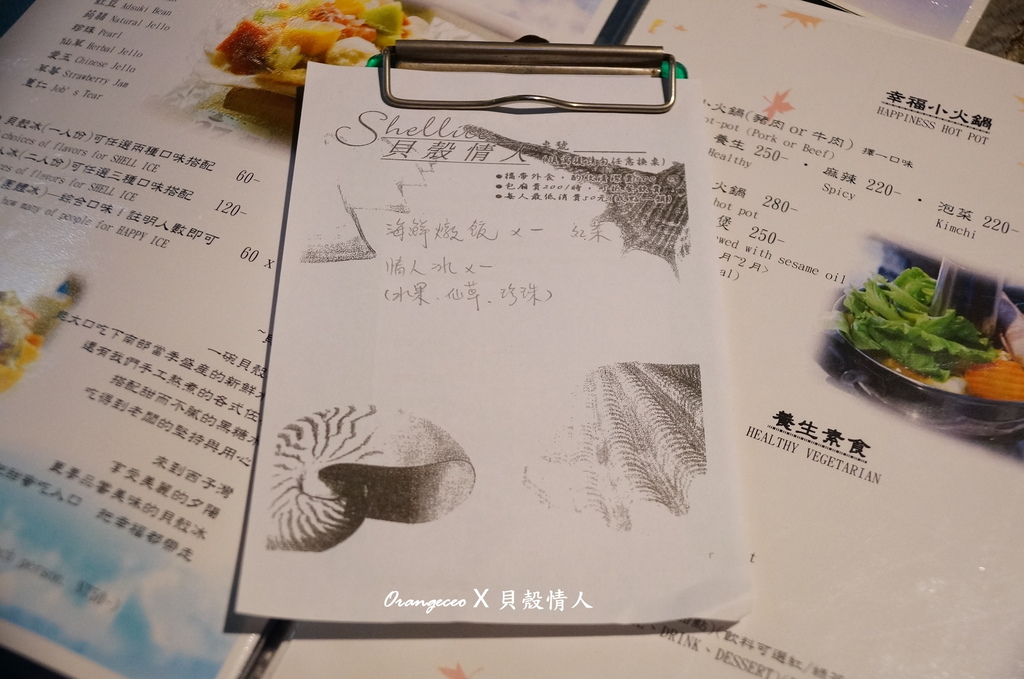 Adsuki Bean
蒟蒻 Natural Jello
珍珠 Pearl
仙草 Herbal Jello
愛玉 Chinese Jello
草莓 Strawberry Jam
薏仁 Job's Tear
貝殼冰(一人份)可任選兩種口味搭配 60-
choices of flavors for SHELL ICE
(二人份)可任選三種口味搭配 120-
of flavors for SHELL ICE
綜合口味!註明人數即可 60 x
how many of people for HAPPY ICE
一碗貝殼
大口吃下南部當季盛產的新鮮
還有我們手工熬煮的各式佐
搭配甜而不膩的黑糖水
吃得到老闆的堅持與用心
來到西子灣
享受美麗的夕陽
夏季品嘗美味的貝殼冰
入口 把幸福都帶走
Shellice
貝殼情人
桌號
●攜帶外食,酌
●包廂費200/時,
●每人最低消費50元
海鮮燉飯 x一 紅茶
情人冰 x一
(水果、仙草、珍珠)
幸福小火鍋
HAPPINESS HOT POT
小火鍋(豬肉 or 牛肉) 擇一口味
ot-pot (Pork or Beef)
養生 250- · 麻辣 220- · 泡菜 220-
Healthy Spicy Kimchi
火鍋 280-
hot pot
煲 250-
wed with sesame oil
月~2月>
al)
養生素食
HEALTHY VEGETARIAN
(飲料可選紅/綠茶
DRINK、DESSERT
Orangeceo X 貝殼情人